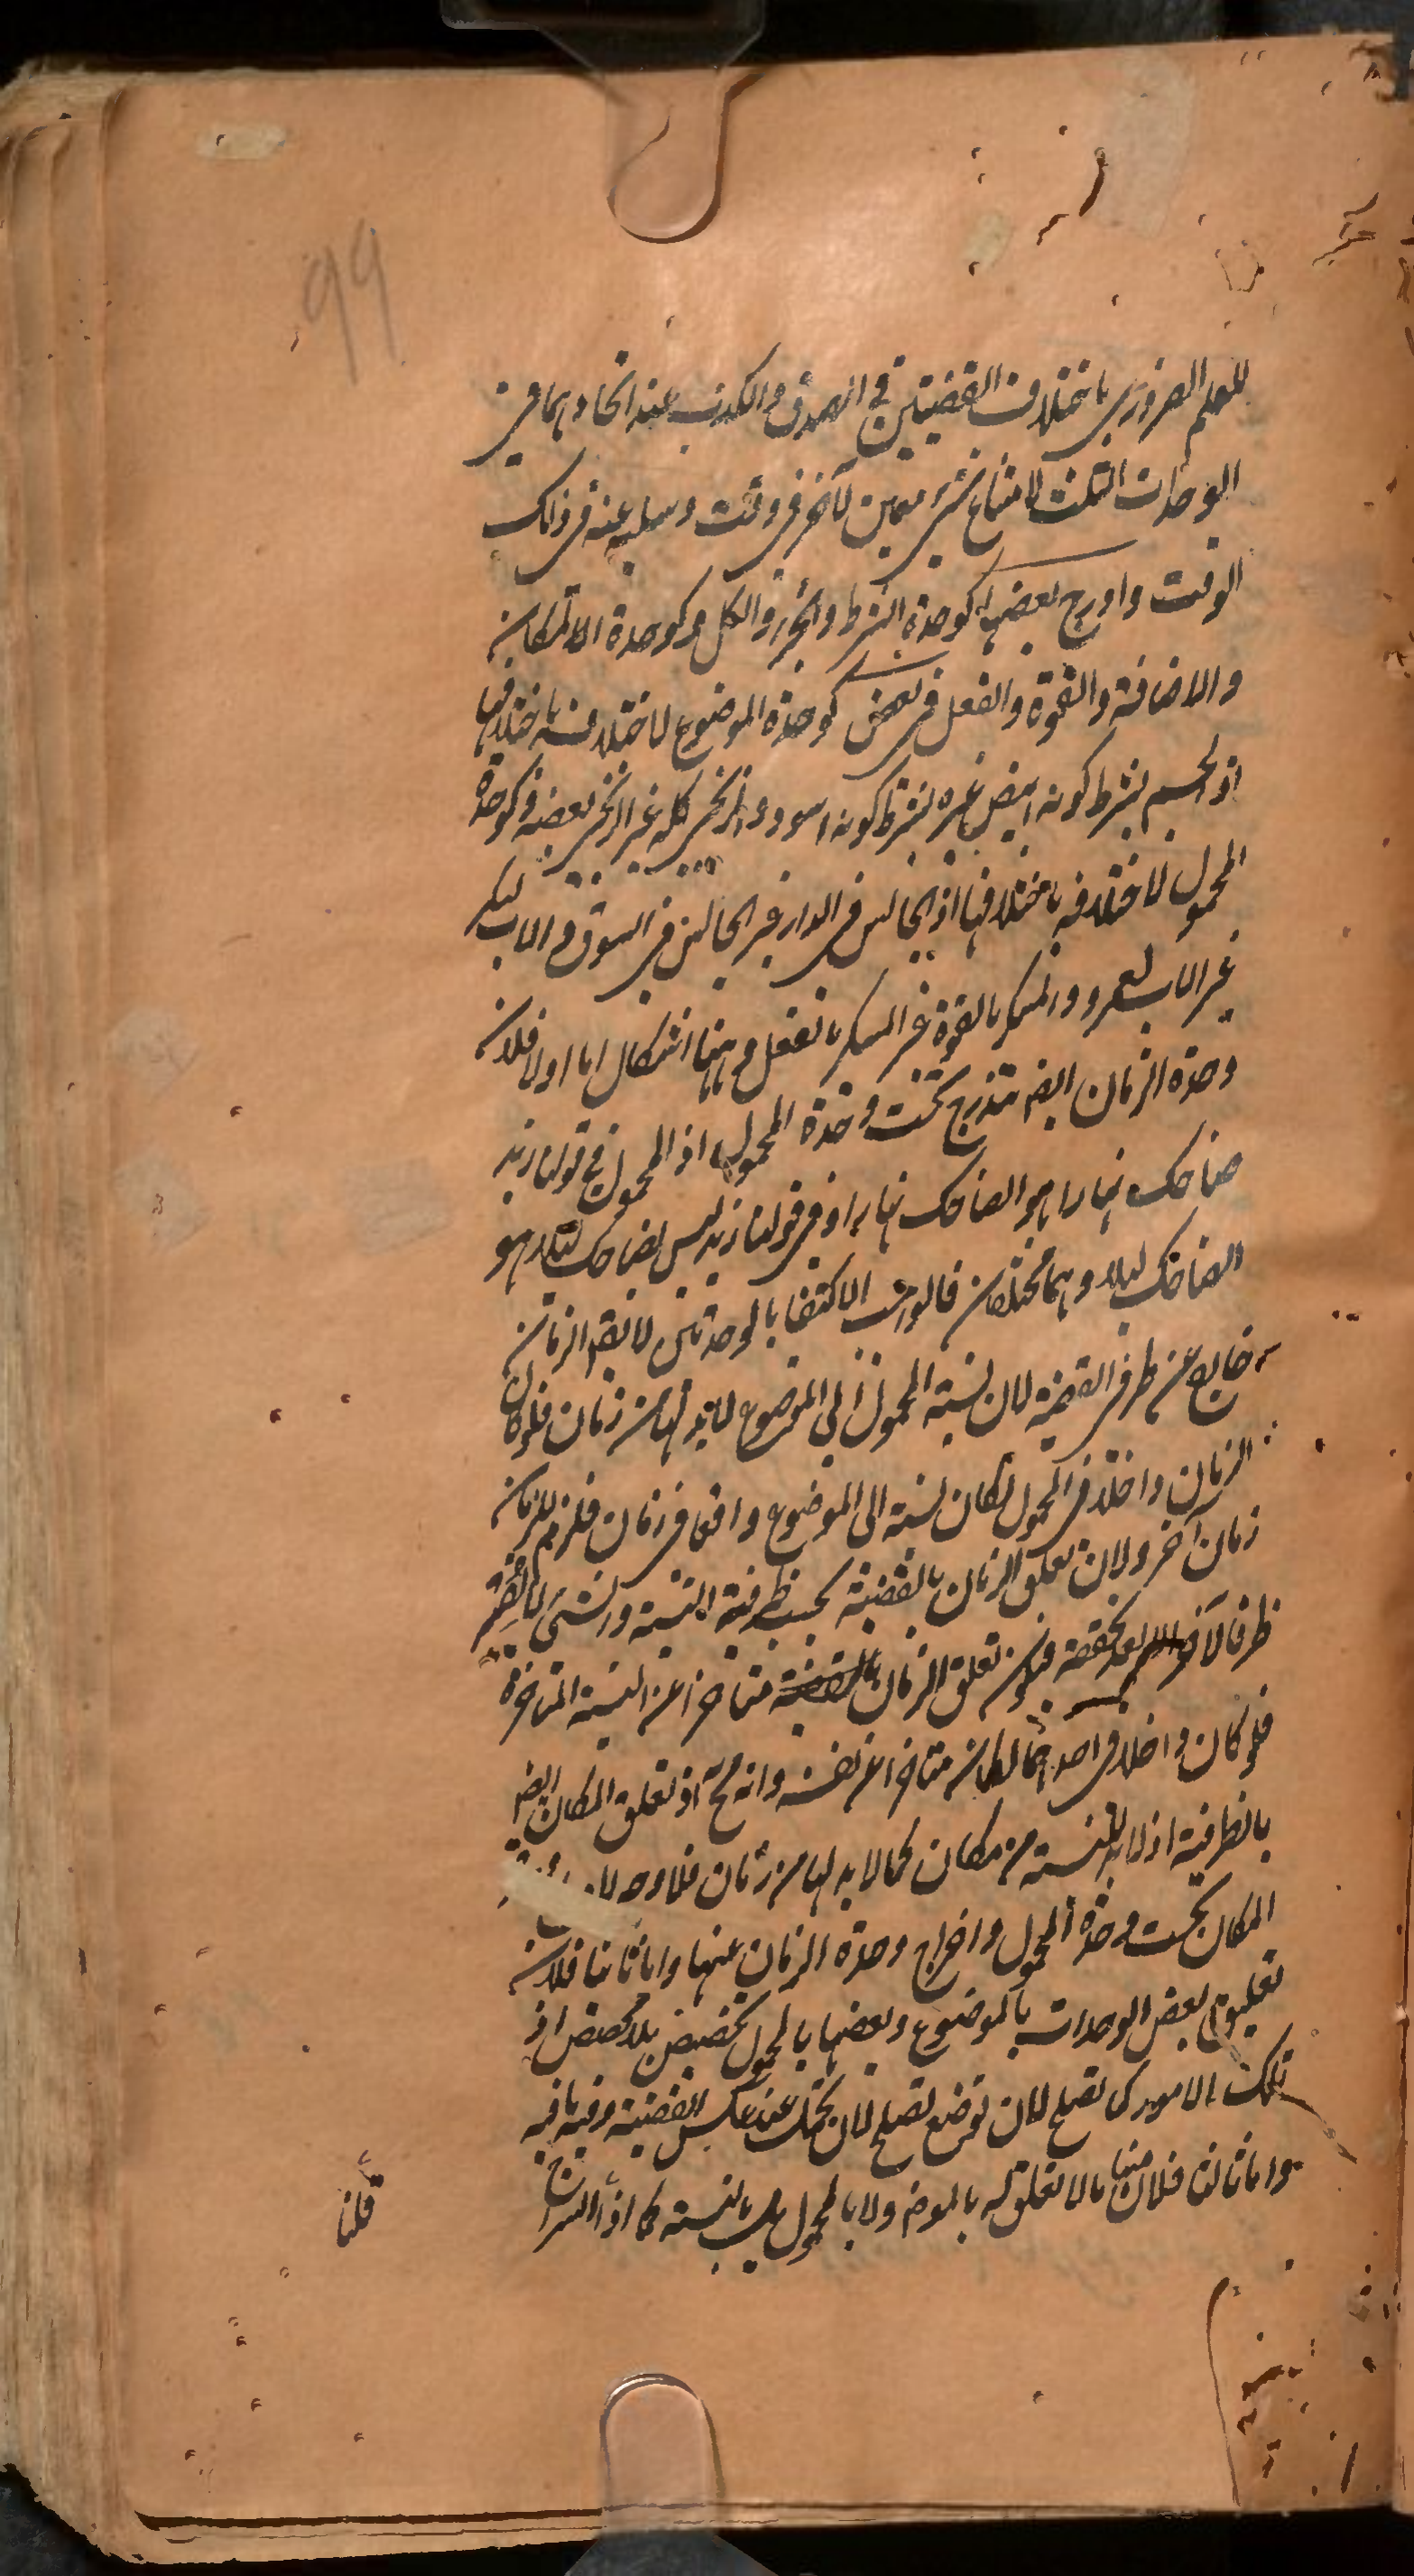 99
للعلم الضروري باختلاف القضيتين في الصدق والكذب عند اتحادهما في
الوحدات الثلث لامتناع ثبوت شئ معين لآخر في وقت وسلبه عنه في ذلك
الوقت وادرج بعضها كوحدة الشرط والجزء والكل وكوحدة المكان
والاضافة والقوة والفعل في بعض كوحدة الموضوع لاختلافه باختلافها
اذ الجسم بشرط كونه ابيض غيره بشرط كونه اسود والزنجي كله غير الزنجي بعضه وكوحدة
المحمول لاختلافه باختلافها اذ الجالس في الدار غير الجالس في السوق والاب لبكر
غير الاب لعمرو والمسكر بالقوة غير المسكر بالفعل وههنا اشكال اما اولا فلان
وحدة الزمان ايضا تندرج تحت وحدة المحمول اذ المحمول في قولنا زيد
ضاحك نهارا هو الضاحك نهارا وفي قولنا زيد ليس بضاحك ليلا هو
الضاحك ليلا وهما مختلفان فالواجب الاكتفا بالوحدتين لا يقال الزمان
خارج عن طرفي القضية لان نسبة المحمول الى الموضوع لا بد لها من زمان فلو كان
الزمان داخلا في المحمول لكان نسبته الى الموضوع واقعا في زمان فلزم للزمان
زمان آخر ولان تعلق الزمان بالقضية بحسب ظرفية النسبة والشئ لا يصير
ظرفا لآخر الا بعد تحققه فيكون تعلق الزمان بالقضية متاخرا عن النسبة المتاخرة
فلو كان داخلا في احدهما لكان متاخرا عن نفسه وانه مح اذ تعلق المكان ايضا
بالظرفية اذ لا بد للنسبة من مكان كما لا بد لها من زمان فلا وجه
المكان تحت وحدة المحمول واخراج وحدة الزمان عنها واما ثانيا فلان
تعليق بعض الوحدات بالموضوع وبعضها بالمحمول تخصيص بلا مخصص اذ
تلك الامور كما تصلح لان توضع تصلح لان تحمل عند عكس القضية وفيه ما فيه
واما ثالثا فلان منها ما لا تعلق له بالموضوع ولا بالمحمول بل بالنسبة كما اذا
قلنا